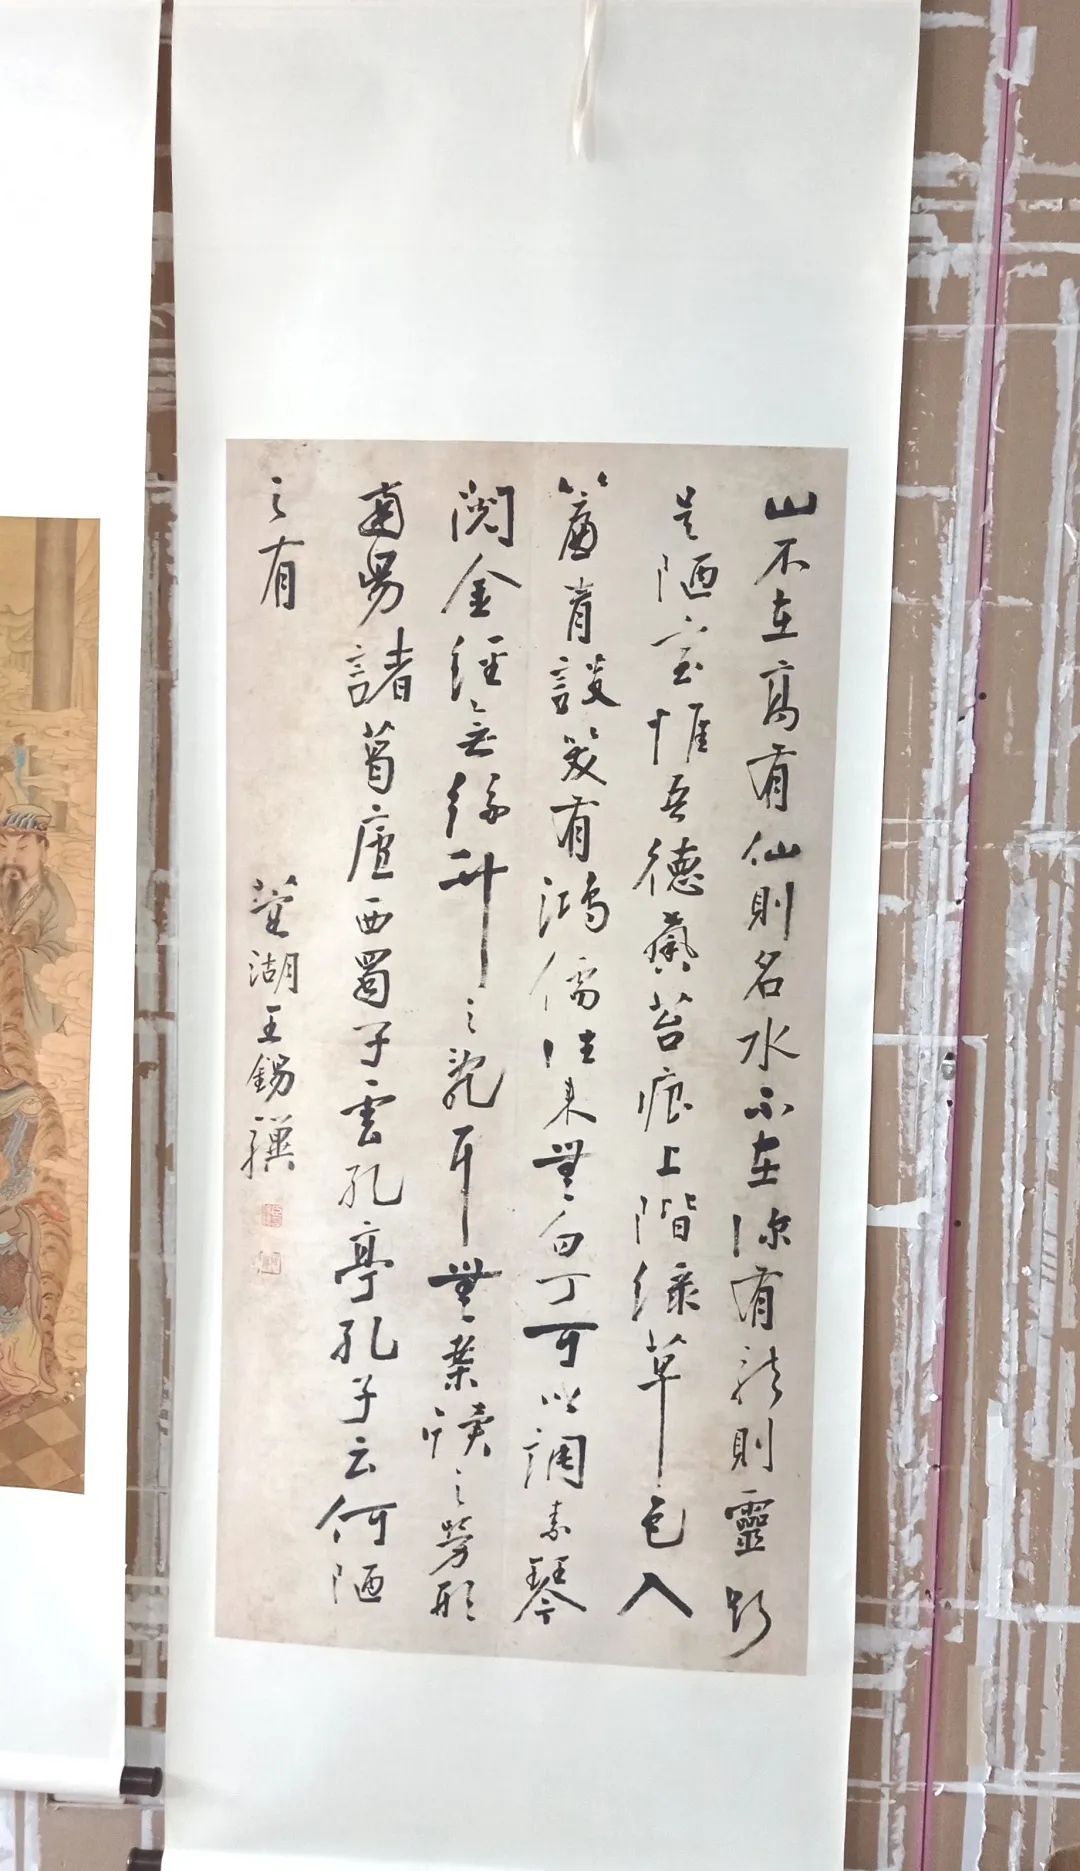 山不在高有仙則名水不在深有龍則靈斯
是陋室惟吾德馨苔痕上階綠草色入
簾青談笑有鴻儒往來無白丁可以調素琴
閱金經無絲竹之亂耳無案牘之勞形
南昜諸葛廬西蜀子雲孔亭孔子云何陋
之有
湖王錫